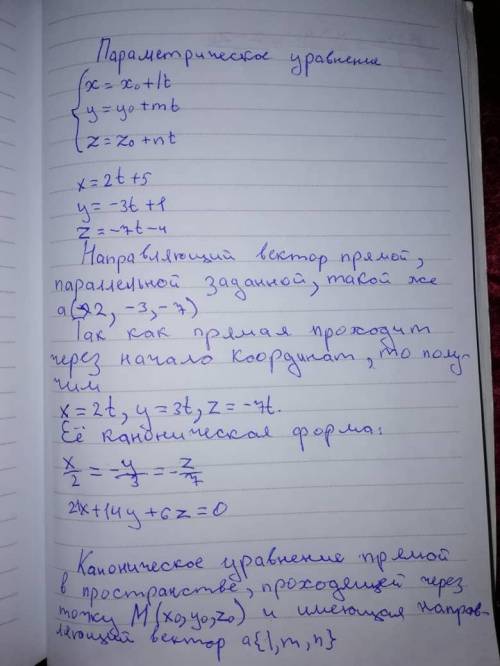 Параметрическое уравнение
x = x₀ + lt
y = y₀ + mt
z = z₀ + nt
x = 2t + 5
y = -3t + 1
z = -7t - 4
Направляющий вектор прямой,
параллельной заданной, такой же
a(2, -3, -7)
Так как прямая проходит
через начало координат, то полу-
чим
x = 2t, y = 3t, z = -7t.
Её каноническая форма:
x/2 = -y/3 = -z/7
21x + 14y + 6z = 0
Каноническое уравнение прямой
в пространстве, проходящей через
точку M(x₀, y₀, z₀) и имеющая направ-
ляющий вектор a{l, m, n}